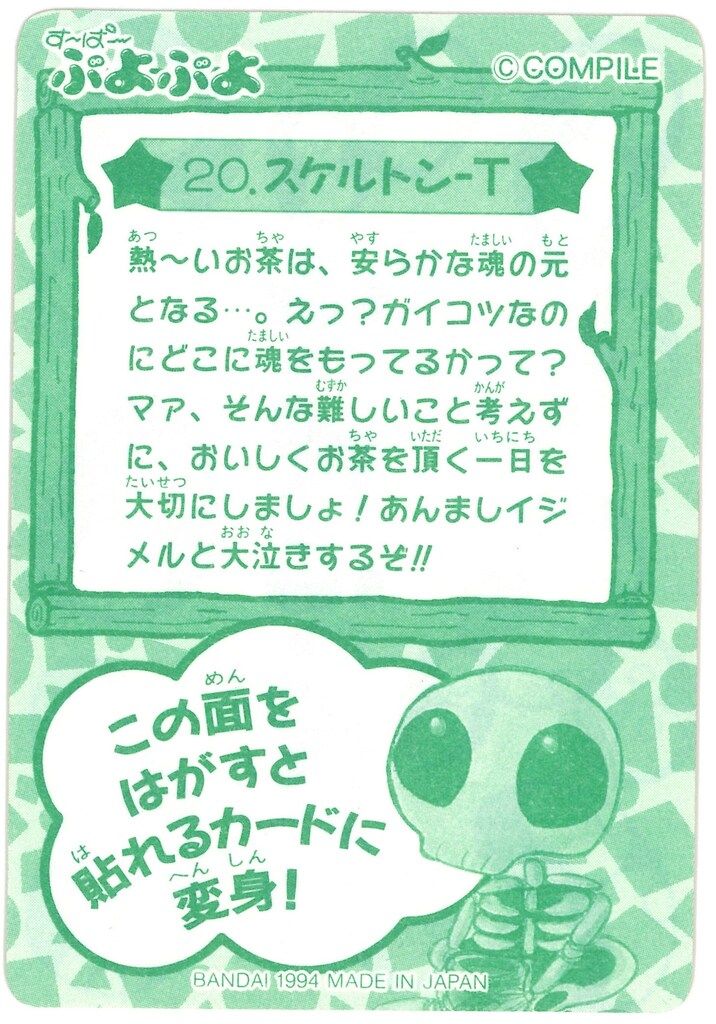 す～ぱ～
ぷよぷよ
© COMPILE
20.スケルトン-T
熱～いお茶は、安らかな魂の元
となる…。えっ？ガイコツなの
にどこに魂をもってるかって？
マァ、そんな難しいこと考えず
に、おいしくお茶を頂く一日を
大切にしましょ！あんましイジ
メルと大泣きするぞ!!
この面を
はがすと
貼れるカードに
変身！
BANDAI 1994 MADE IN JAPAN